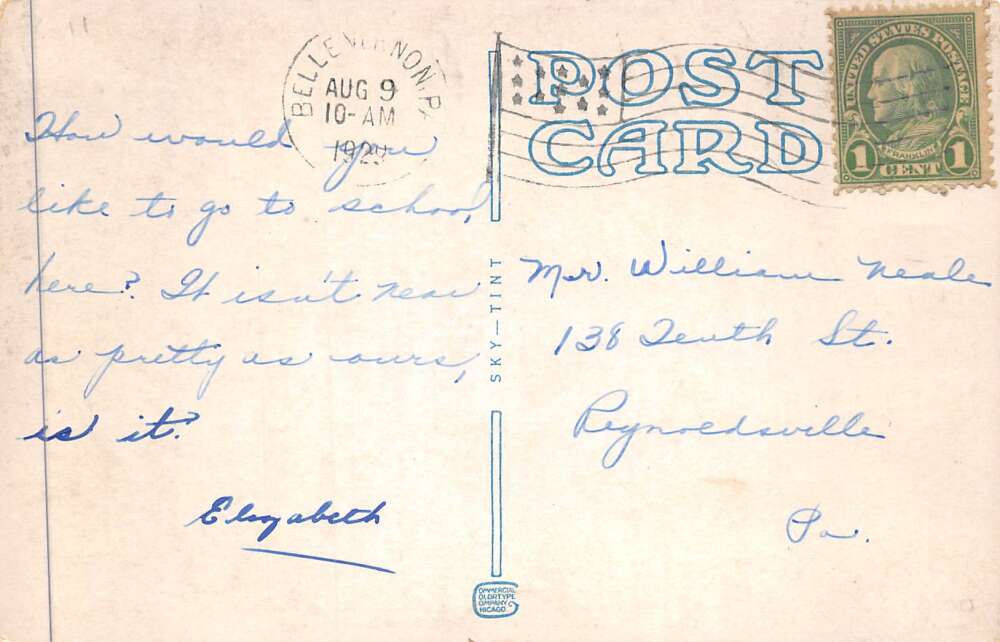 11
BELLE VERNON, PA
AUG 9
10-AM
POST
CARD
UNITED STATES POSTAGE
FRANKLIN
1 CENT 1
How would you
like to go to school
here? It isn't near
as pretty as ours,
is it?
Elizabeth
SKY-TINT
Mr. William Neale
138 Tenth St.
Reynoldsville
Pa.
COMMERCIAL
COLORTYPE
COMPANY
CHICAGO